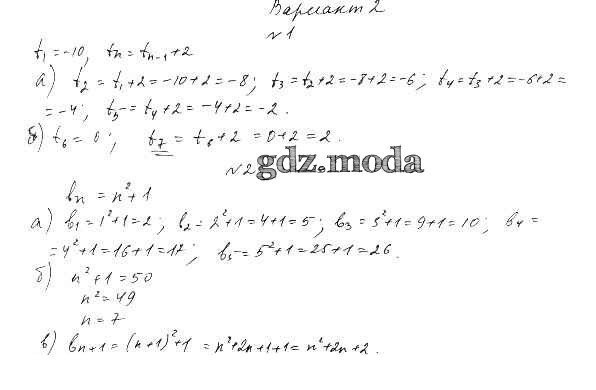 Вариант 2
№1
t₁ = -10, tₙ = tₙ₋₁ + 2
а) t₂ = t₁ + 2 = -10 + 2 = -8; t₃ = t₂ + 2 = -8 + 2 = -6; t₄ = t₃ + 2 = -6 + 2 =
= -4; t₅ = t₄ + 2 = -4 + 2 = -2.
б) t₆ = 0; t₇ = t₆ + 2 = 0 + 2 = 2.
№2
gdz.moda
bₙ = n² + 1
а) b₁ = 1² + 1 = 2; b₂ = 2² + 1 = 4 + 1 = 5; b₃ = 3² + 1 = 9 + 1 = 10; b₄ =
= 4² + 1 = 16 + 1 = 17; b₅ = 5² + 1 = 25 + 1 = 26.
б) n² + 1 = 50
n² = 49
n = 7
в) bₙ₊₁ = (n + 1)² + 1 = n² + 2n + 1 + 1 = n² + 2n + 2.